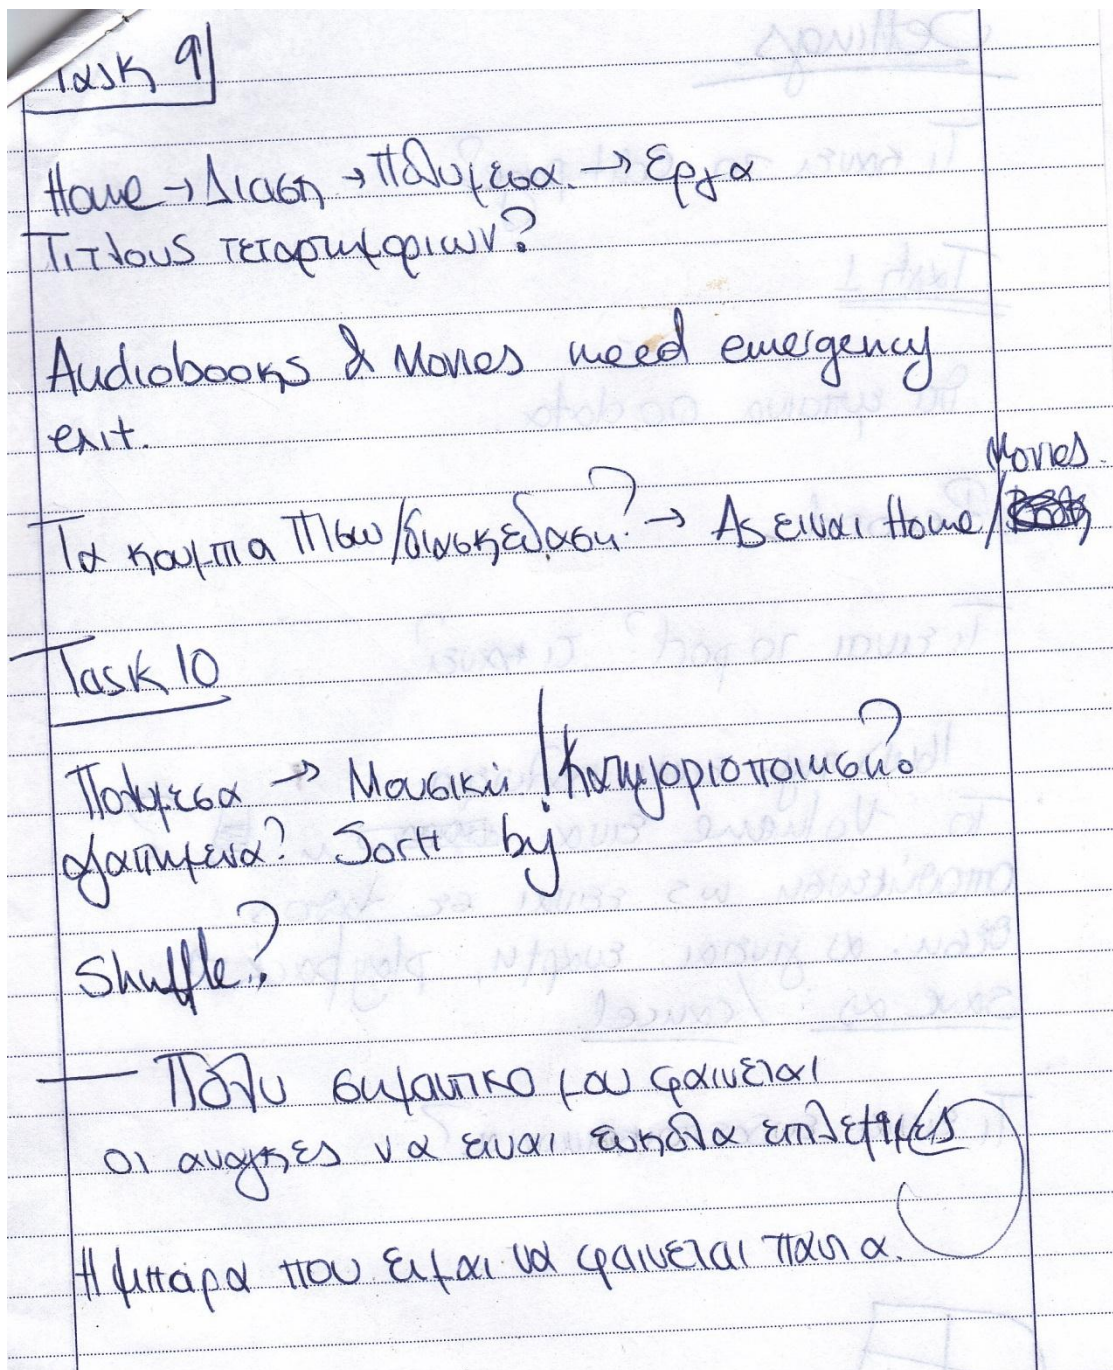 Task 9
Home → Διαση → Πολυμεσα. → Εργα
Τιτλους τεταρτημοριων?
Audiobooks & Movies need emergency
exit.
Movies.
Τα κουμπια Πισω/διασκεδαση? → Ας ειναι Home/
Task 10
Πολυμεσα → Μουσικη! Κατηγοριοποιηση?
αγαπημενα? Sort by
Shuffle?
— Πολυ σημαντικο μου φαινεται
οι αναγκες να ειναι ευκολα επιλεξιμες
Η μπαρα που ειμαι να φαινεται παντα.